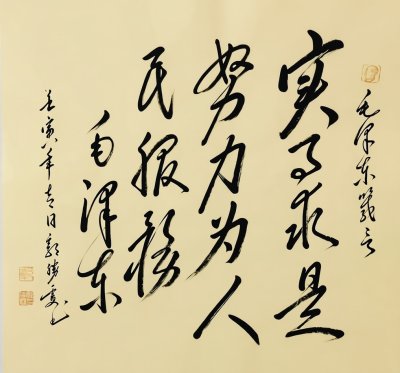 毛泽东箴言
实事求是
努力为人
民服務
毛泽东
壬寅年吉日郭